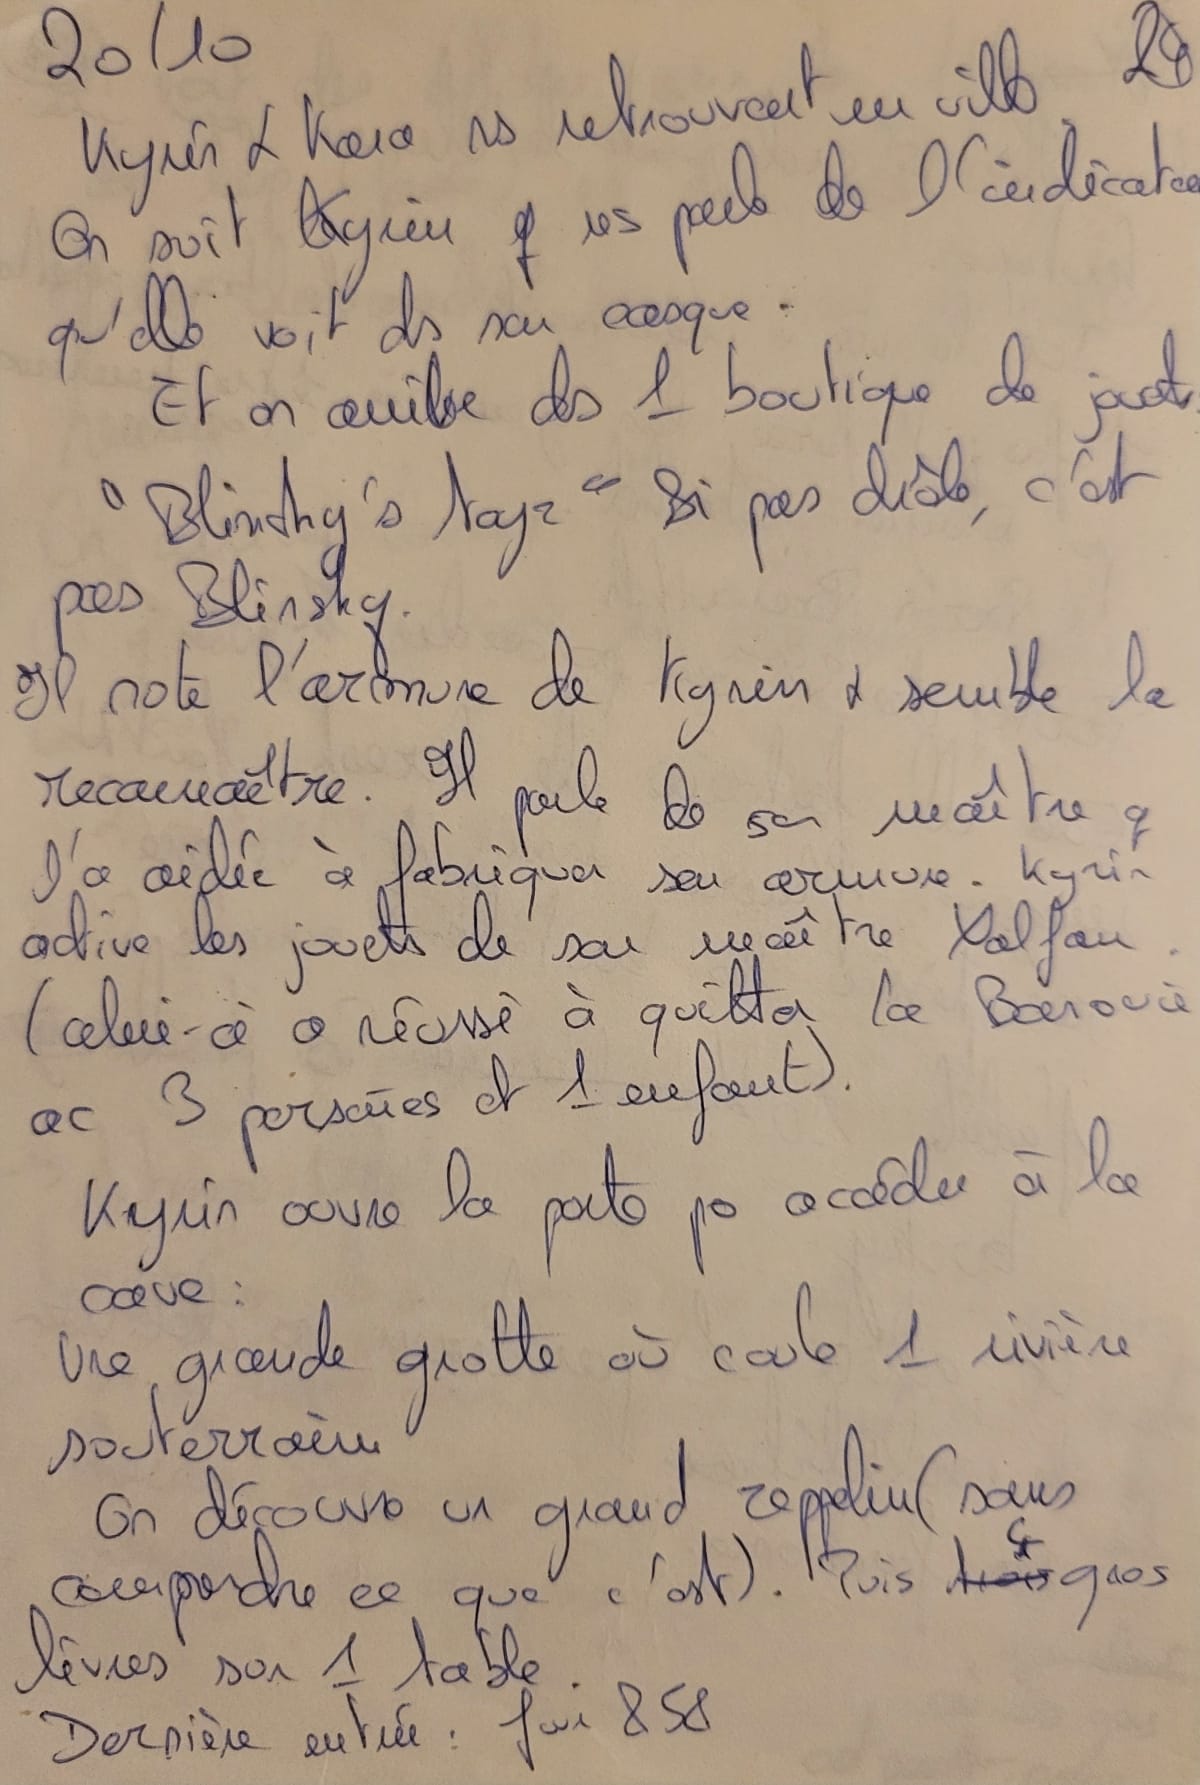 20/10
Kyrin & Kara ns retrouvent en ville.
On suit Kyrin q ns parle de l'indicateur
qu'elle voit ds son casque.
Et on arrive ds 1 boutique de jouets
"Blinsky's toyz" Si pas drôle, c'est
pas Blinsky.
Il note l'armure de Kyrin & semble la
reconnaître. Il parle de son maître q
l'a aidée à fabriquer son armure. Kyrin
active les jouets de son maître
(celui-ci a réussi à quitter la Barovie
ac 3 persones et 1 enfant).
Kyrin ouvre la porte po accéder à la
cave :
Une grande grotte où coule 1 rivière
souterraine
On découvre un grand zeppelin (sans
comprendre ce que c'est). Puis gros
livres sur 1 table.
Dernière entrée : 858